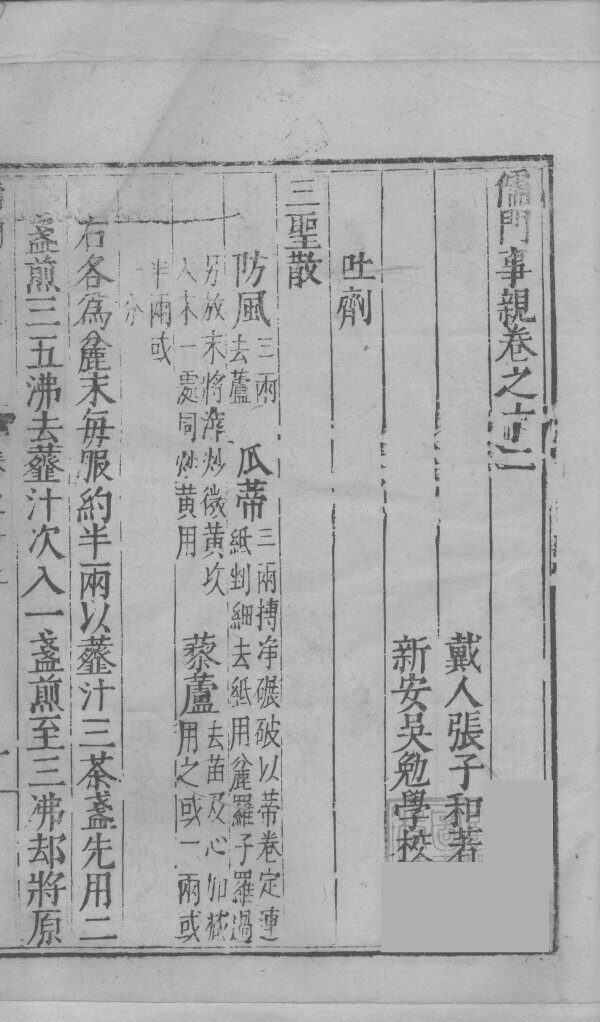 儒門事親卷之十二
戴人張子和著
新安吳勉學校
吐劑
三聖散
防風三兩去蘆 瓜蒂三兩揀净碾破以蒂卷定連紙剉細去紙用麄羅子羅過
另放末將滓炒微黄次入末一處同炒黄用 藜蘆去苗及心加減用之或一兩或
半兩或一分
右各爲麄末每服約半兩以虀汁三茶盞先用二
盞煎三五沸去虀汁次入一盞煎至三沸却將原